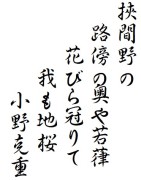 挾間野の
路傍の奥や若葎
花びら冠りて
我も地桜
小野克重